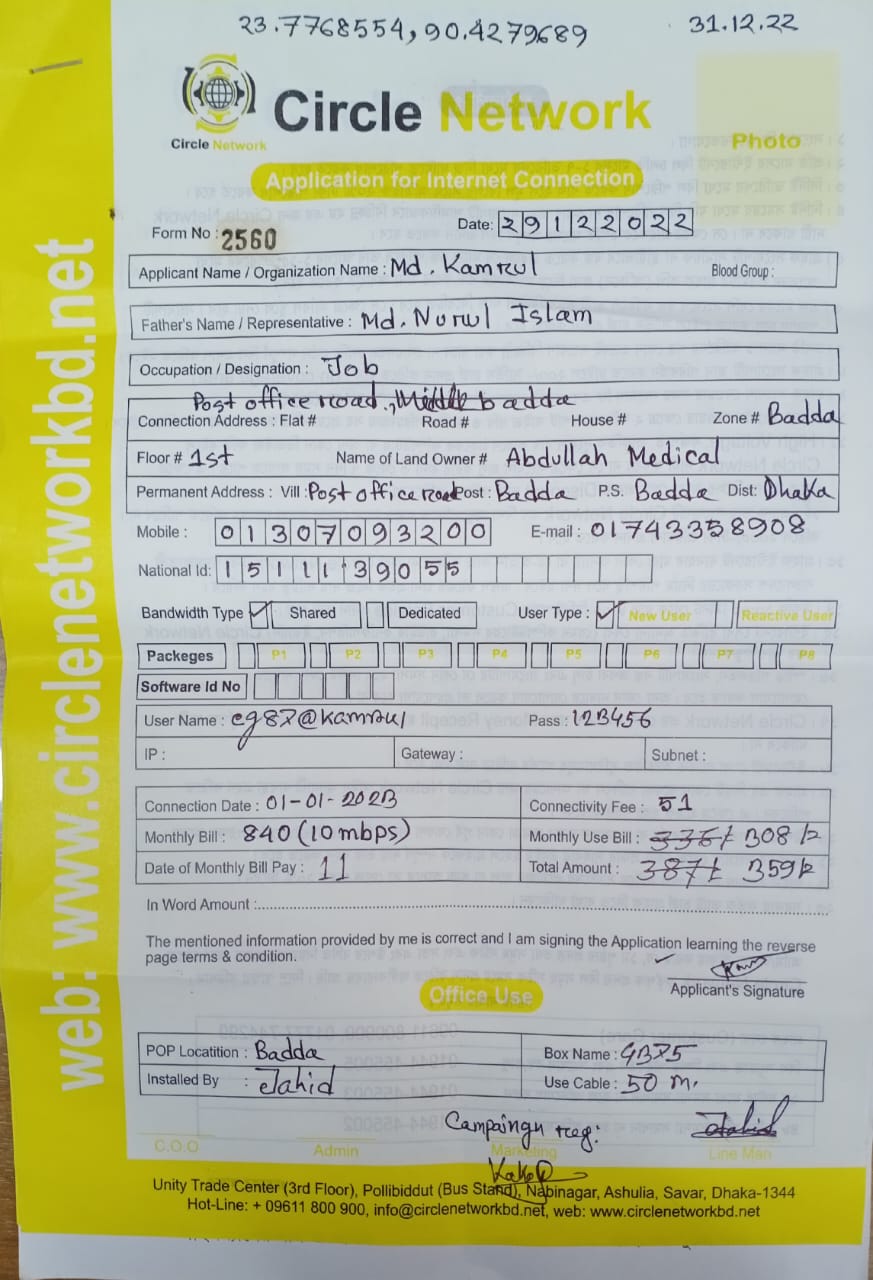 23.7768554, 90.4279689 31.12.22
Circle Network
Circle Network
Photo
Application for Internet Connection
Form No : 2560 Date: 29122022
Applicant Name / Organization Name : Md. Kamrul Blood Group :
Father's Name / Representative : Md. Nurul Islam
Occupation / Designation : Job
Post office road, Middle badda
Connection Address : Flat # Road # House # Zone # Badda
Floor # 1st Name of Land Owner # Abdullah Medical
Permanent Address : Vill : Post office road Post : Badda P.S. Badda Dist: Dhaka
Mobile : 01307093200 E-mail : 01743358908
National Id: 1511139055
Bandwidth Type ✓ Shared Dedicated User Type : ✓ New User Reactive User
Packeges P1 P2 P3 P4 P5 P6 P7 P8
Software Id No
User Name : cg87@kamrul Pass : 123456
IP : Gateway : Subnet :
Connection Date : 01-01-2023 Connectivity Fee : 51
Monthly Bill : 840 (10 mbps) Monthly Use Bill : 336/- 308/-
Date of Monthly Bill Pay : 11 Total Amount : 387/- 359/-
In Word Amount :
The mentioned information provided by me is correct and I am signing the Application learning the reverse
page terms & condition.
Applicant's Signature
Office Use
POP Locatition : Badda Box Name : GB75
Installed By : Jahid Use Cable : 50 m.
Campaingn reg: Jahid
C.O.O Admin Marketing Line Man
Unity Trade Center (3rd Floor), Pollibiddut (Bus Stand), Nabinagar, Ashulia, Savar, Dhaka-1344
Hot-Line: + 09611 800 900, info@circlenetworkbd.net, web: www.circlenetworkbd.net
web: www.circlenetworkbd.net